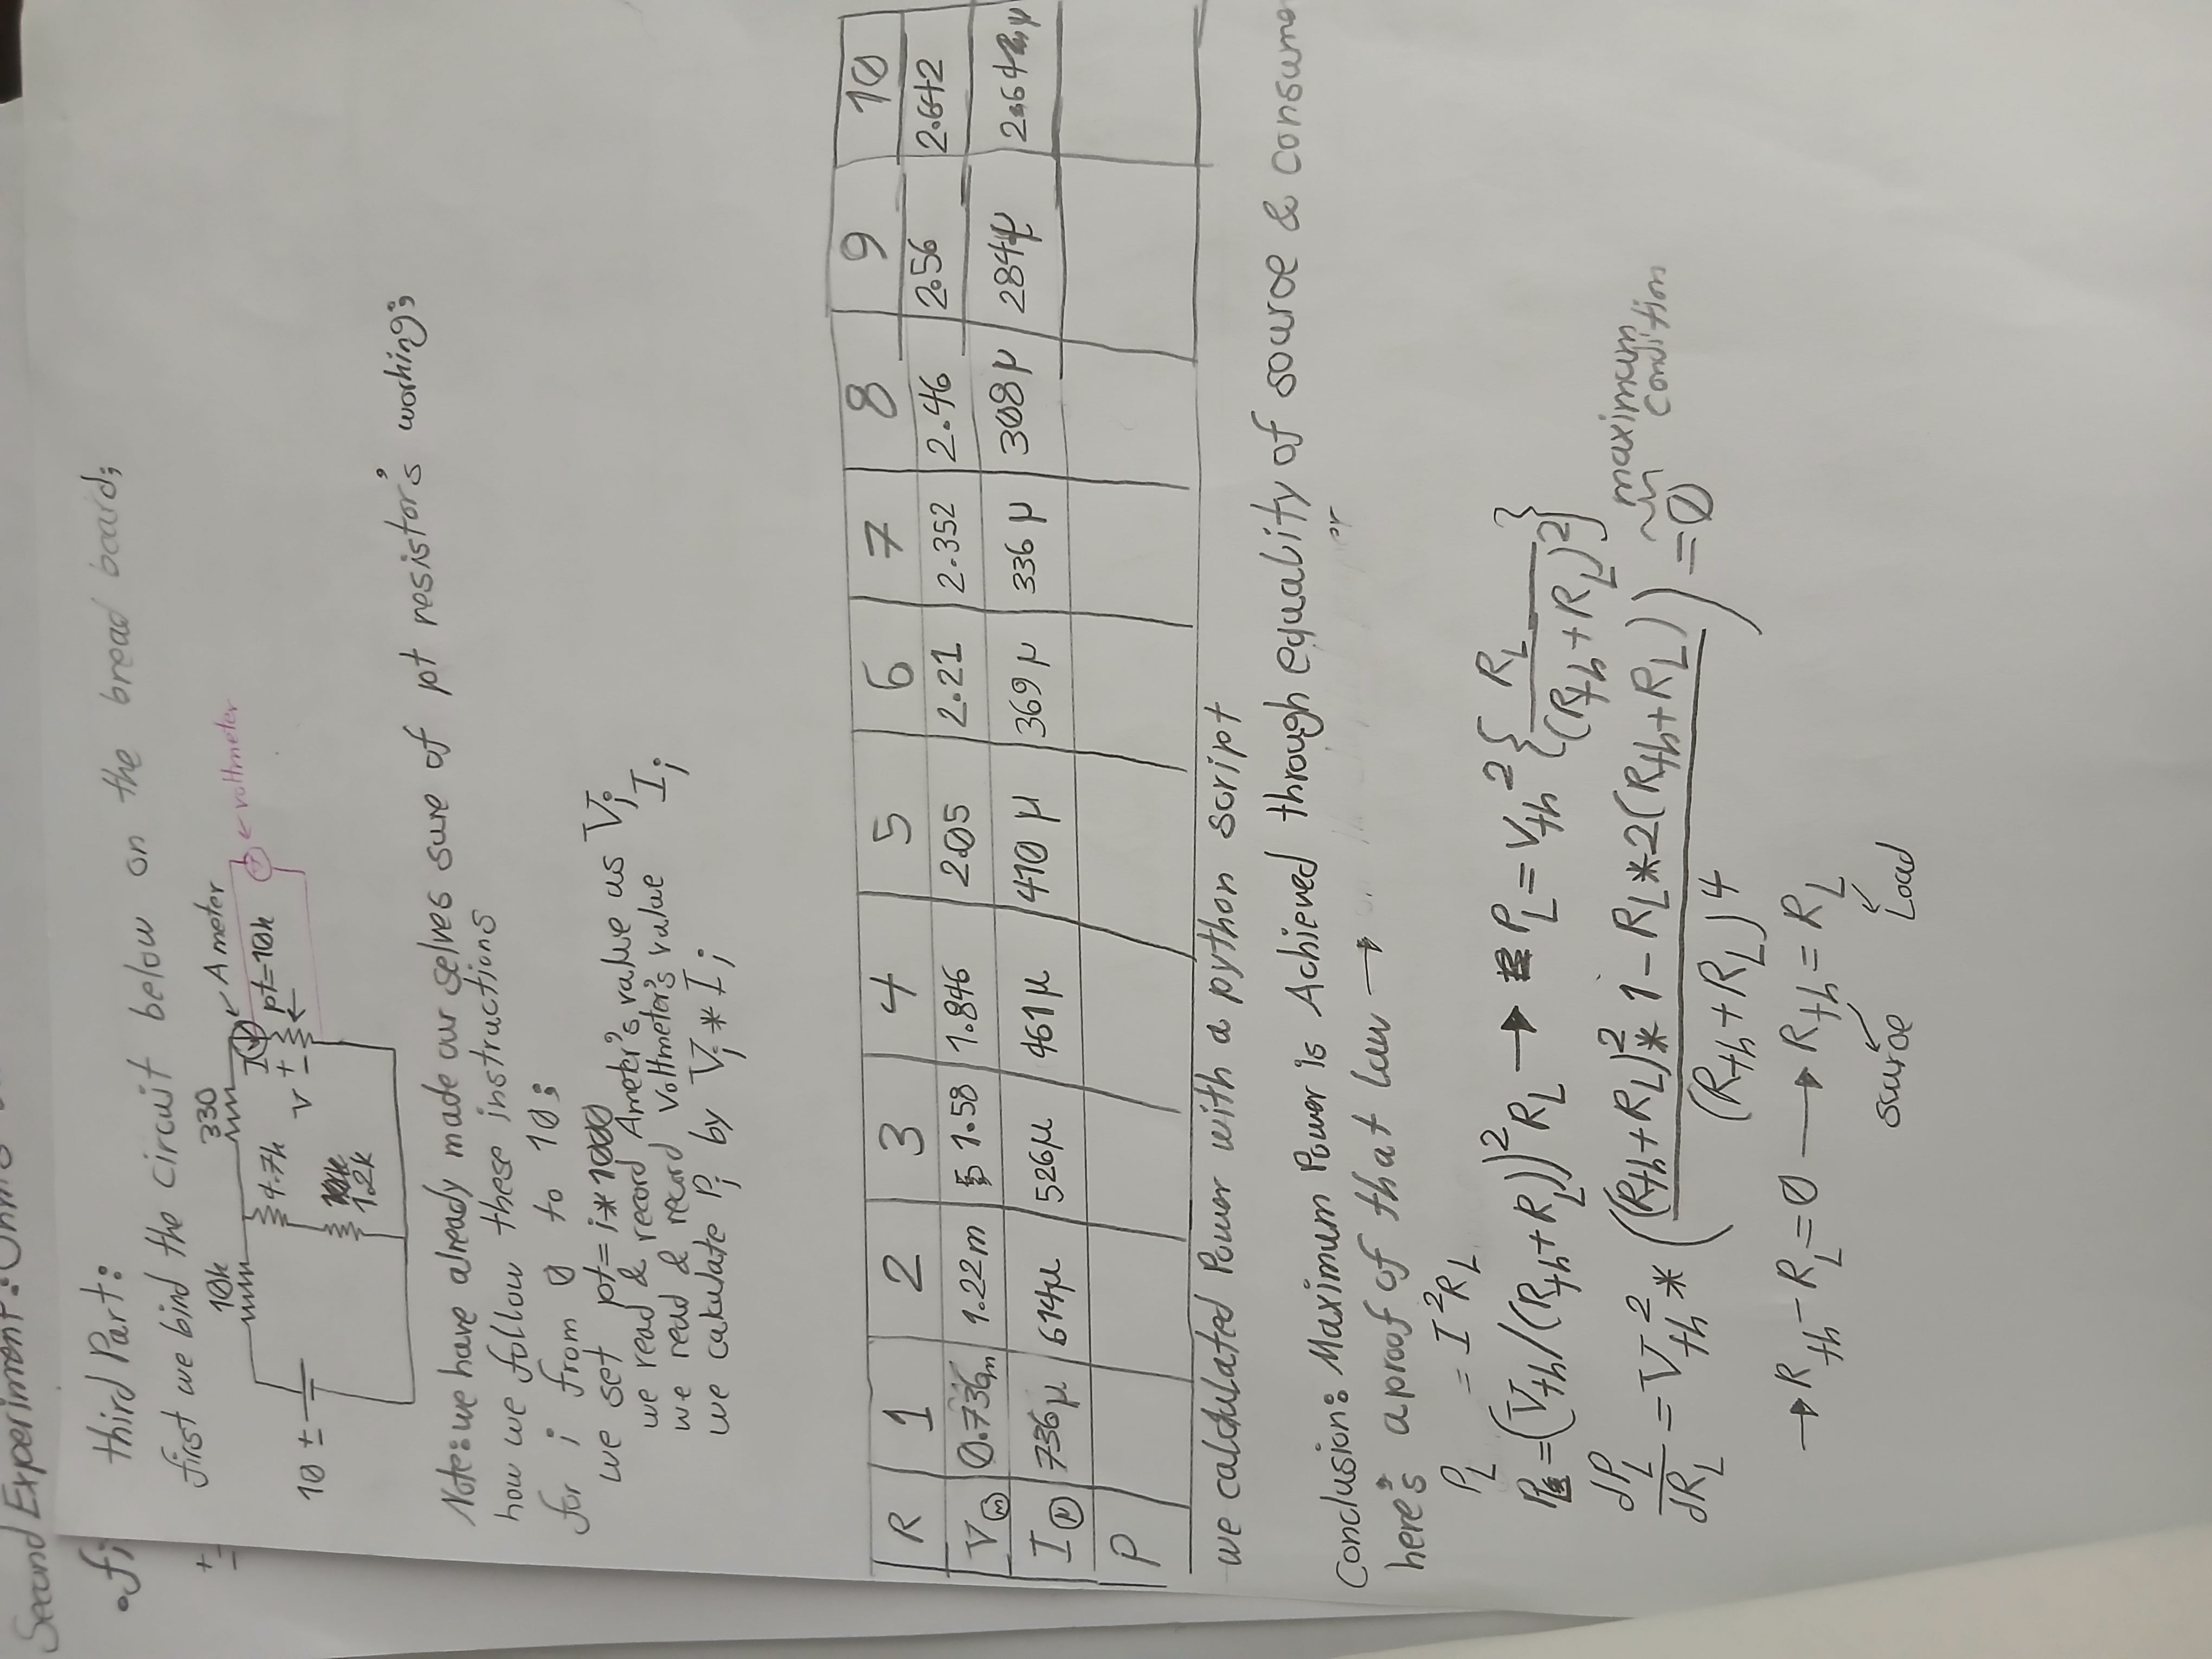 Second Experiment:
fi
Third Part:
first we bind the circuit below on the bread board:
10k
330
Ameter
I
10 ±
4.7k
V + -
pt=10k
voltmeter
12k
Note: we have already made our selves sure of pt resistor's working;
how we follow these instructions
for i from 0 to 10:
we set pt = i*1000
we read & record Ameter's value as Vi
we read & record voltmeter's value Ii
we calculate Pi by Vi * Ii
R 1 2 3 4 5 6 7 8 9 10
V (m) 0.736m 1.22m 1.58 1.846 2.05 2.21 2.352 2.46 2.56 2.642
I (μ) 736μ 614μ 526μ 461μ 410μ 369μ 336μ 308μ 284μ 264μ
P
we calculated Power with a python script
Conclusion: Maximum Power is Achieved through equality of source & consume
here's a proof of that law →
PL = I²RL
= (Vth/(Rth+RL))²RL → PL = Vth² { RL / (Rth+RL)² }
dPL/dRL = Vth² * ( ((Rth+RL)² * 1 - RL * 2(Rth+RL)) / (Rth+RL)4 ) = 0
maximum condition
→ Rth - RL = 0 → Rth = RL
source Load